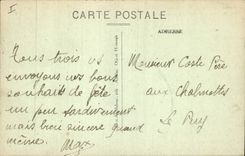 I
CARTE POSTALE
ADRESSE
Tous trois vs
envoyons nos bons
souhaits de fête
un peu tardivement
mais bien sincère quand
même. Max
Monsieur Coste Père
aux Chalmettes
Le Puy